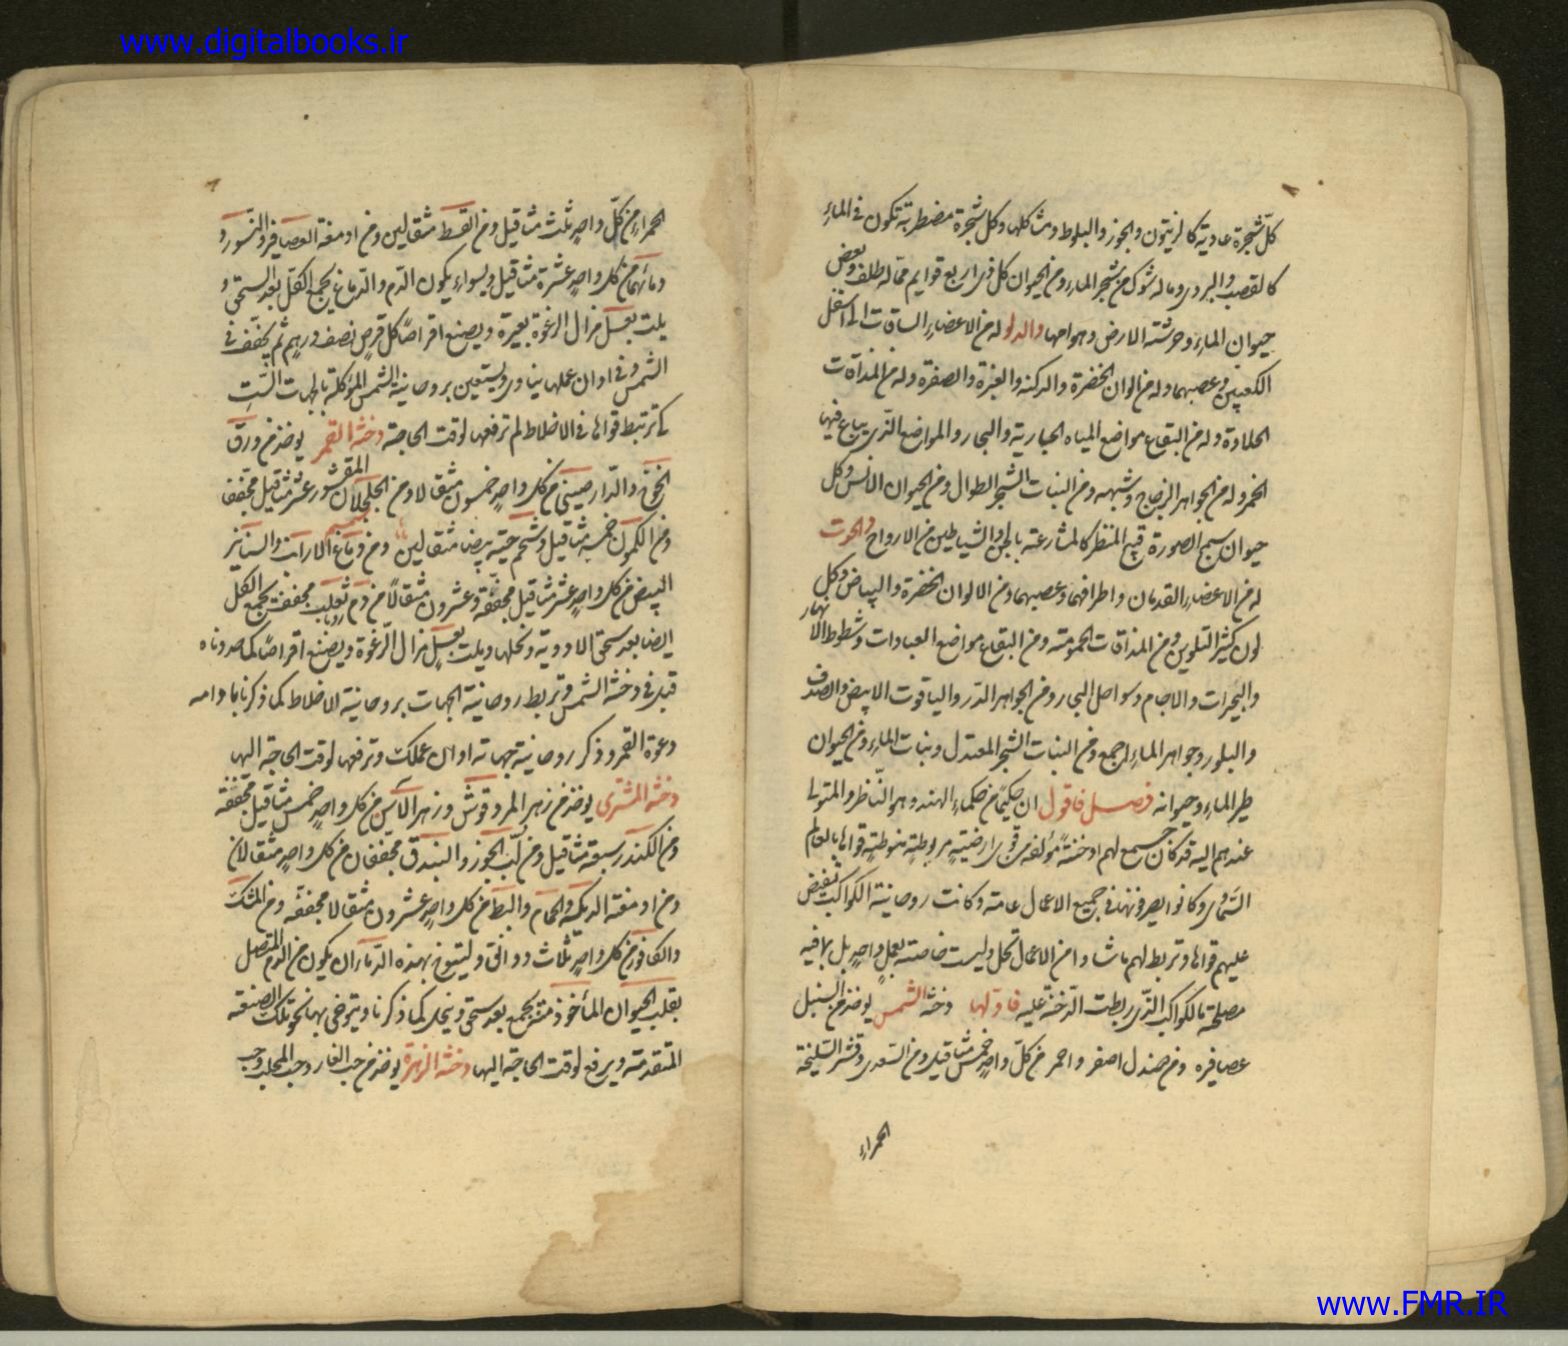 www.digitalbooks.ir
كل شجرة عادية كالزيتون والجوز والبلوط ومشاكلها وكل شجرة مضطربة تكون في الماء
كالقصب والبردى وماله شوك من شجر الماء ومن الحيوان كل ذى اربع قوايم مما له ظلف وبعض
حيوان الماء وحرشة الارض وهوامها والدلو له من الاعضاء الساقات الى اسفل
الكعبين وعصبهما وله من الوان الخضرة والدكنة والغبرة والصفرة وله من المذاقات
الحلاوة وله من البقاع مواضع المياه الجارية والبحار والمواضع التى يباع فيها
الخمر وله من الجواهر الزجاج وشبهه ومن النبات الشجر الطوال ومن الحيوان الانس وكل
حيوان سمج الصورة قبيح المنظر كالمشارعة بالجن والشياطين من الارواح والحوت
له من الاعضاء القدمان واطرافهما وعصبهما ومن الالوان الخضرة والبياض وكل
لون كثير التلوين ومن المذاقات الحموضة ومن البقاع مواضع العبادات وشطوط الانهار
والبحيرات والاجام وسواحل البحار ومن الجواهر الدر والياقوت الابيض والصدف
والبلور وجواهر الماء اجمع ومن النبات الشجر المعتدل ونبات الماء ومن الحيوان
طير الماء وحيوانه فصل فاقول ان حكيما من حكماء الهند وهو الناظر والمتولى
عندهم اليه قد كان جمع لهم ادخنة مؤلفة من قوى ارضية مربوطة منوطة قواها بالعالم
السماوى وكانوا يصرفونها فى جميع الاعمال عامة وكانت روحانية الكواكب تفيض
عليهم قواها وتربط لهم ماشاوا من الاعمال وليست خاصة بعمل واحد بل مافيه
مصلحة مالكواكب التى ربطت الدخنة عليه فاولها دخنة الشمس يوخذ من السنبل
عصافيره ومن صندل اصفر واحمر من كل واحد خمس مثاقيل ومن السعدى وقشر السليخة
الحمراء
الحمراء من كل واحد ثلث مثاقيل ومن القسط مثقالين ومن ادمغة العصافير والنسور و
ومائهما من كل واحد عشرة مثاقيل وبسواء يكون الدم والدماغ يجمع الكل بعد السحق و
يلت بعسل منزال الرغوة بغيره ويصنع اقراصا كل قرص نصف درهم ثم يجفف فى
الشمس وفى اوان عملها يناوى ويستعين بروحانية الشمس المؤكلة بالجهات الست
كى ترتبط قواها فى الاخلاط ثم ترفعها لوقت الحاجة دخنة القمر يوخذ من ورق
الخوخ والدارصينى من كل واحد خمسون مثقالا ومن الجلجلان المقشور عشر مثاقيل مجففا
ومن الكمون خمسة مثاقيل وشحم حية بيضا مثقالين ومن دماغ الارانب والسنانير
البيض من كل واحد عشر مثاقيل مجففة وعشرون مثقالا من دم ثعلب مجفف يجمع الكل
ايضا بعد سحق الادوية ونخلها ويلت بعسل منزال الرغوة ويصنع اقراصا كما حددناه
قبل فى دخنة الشمس وتربط روحانية الجهات بروحانية الاخلاط كما ذكرنا بادامه
دعوة القمر وذكر روحانية جهاته اوان عملك وترفعها لوقت الحاجة اليها
دخنة المشترى يوخذ من زهر المردقوش وزهر الآس من كل واحد خمس مثاقيل مجففة
ومن الكندر سبعة مثاقيل ومن لب الجوز والبندق مجففان من كل واحد مثقالان
ومن ادمغة الديكة والحمام والبط من كل واحد عشرون مثقالا مجففة ومن المسك
والكافور من كل واحد ثلاث دوانق وليتوخ بهذه الدماء ان يكون من الدم المتصل
بقلب الحيوان المأخوذ منه يجمع بعد سحق ونخل كما ذكرنا ويتوخى بها نحو تلك الصنعة
المتقدمة ويرفع لوقت الحاجة اليها دخنة الزهرة يوخذ من حب الغار وحب المحلب وحب
www.FMR.IR